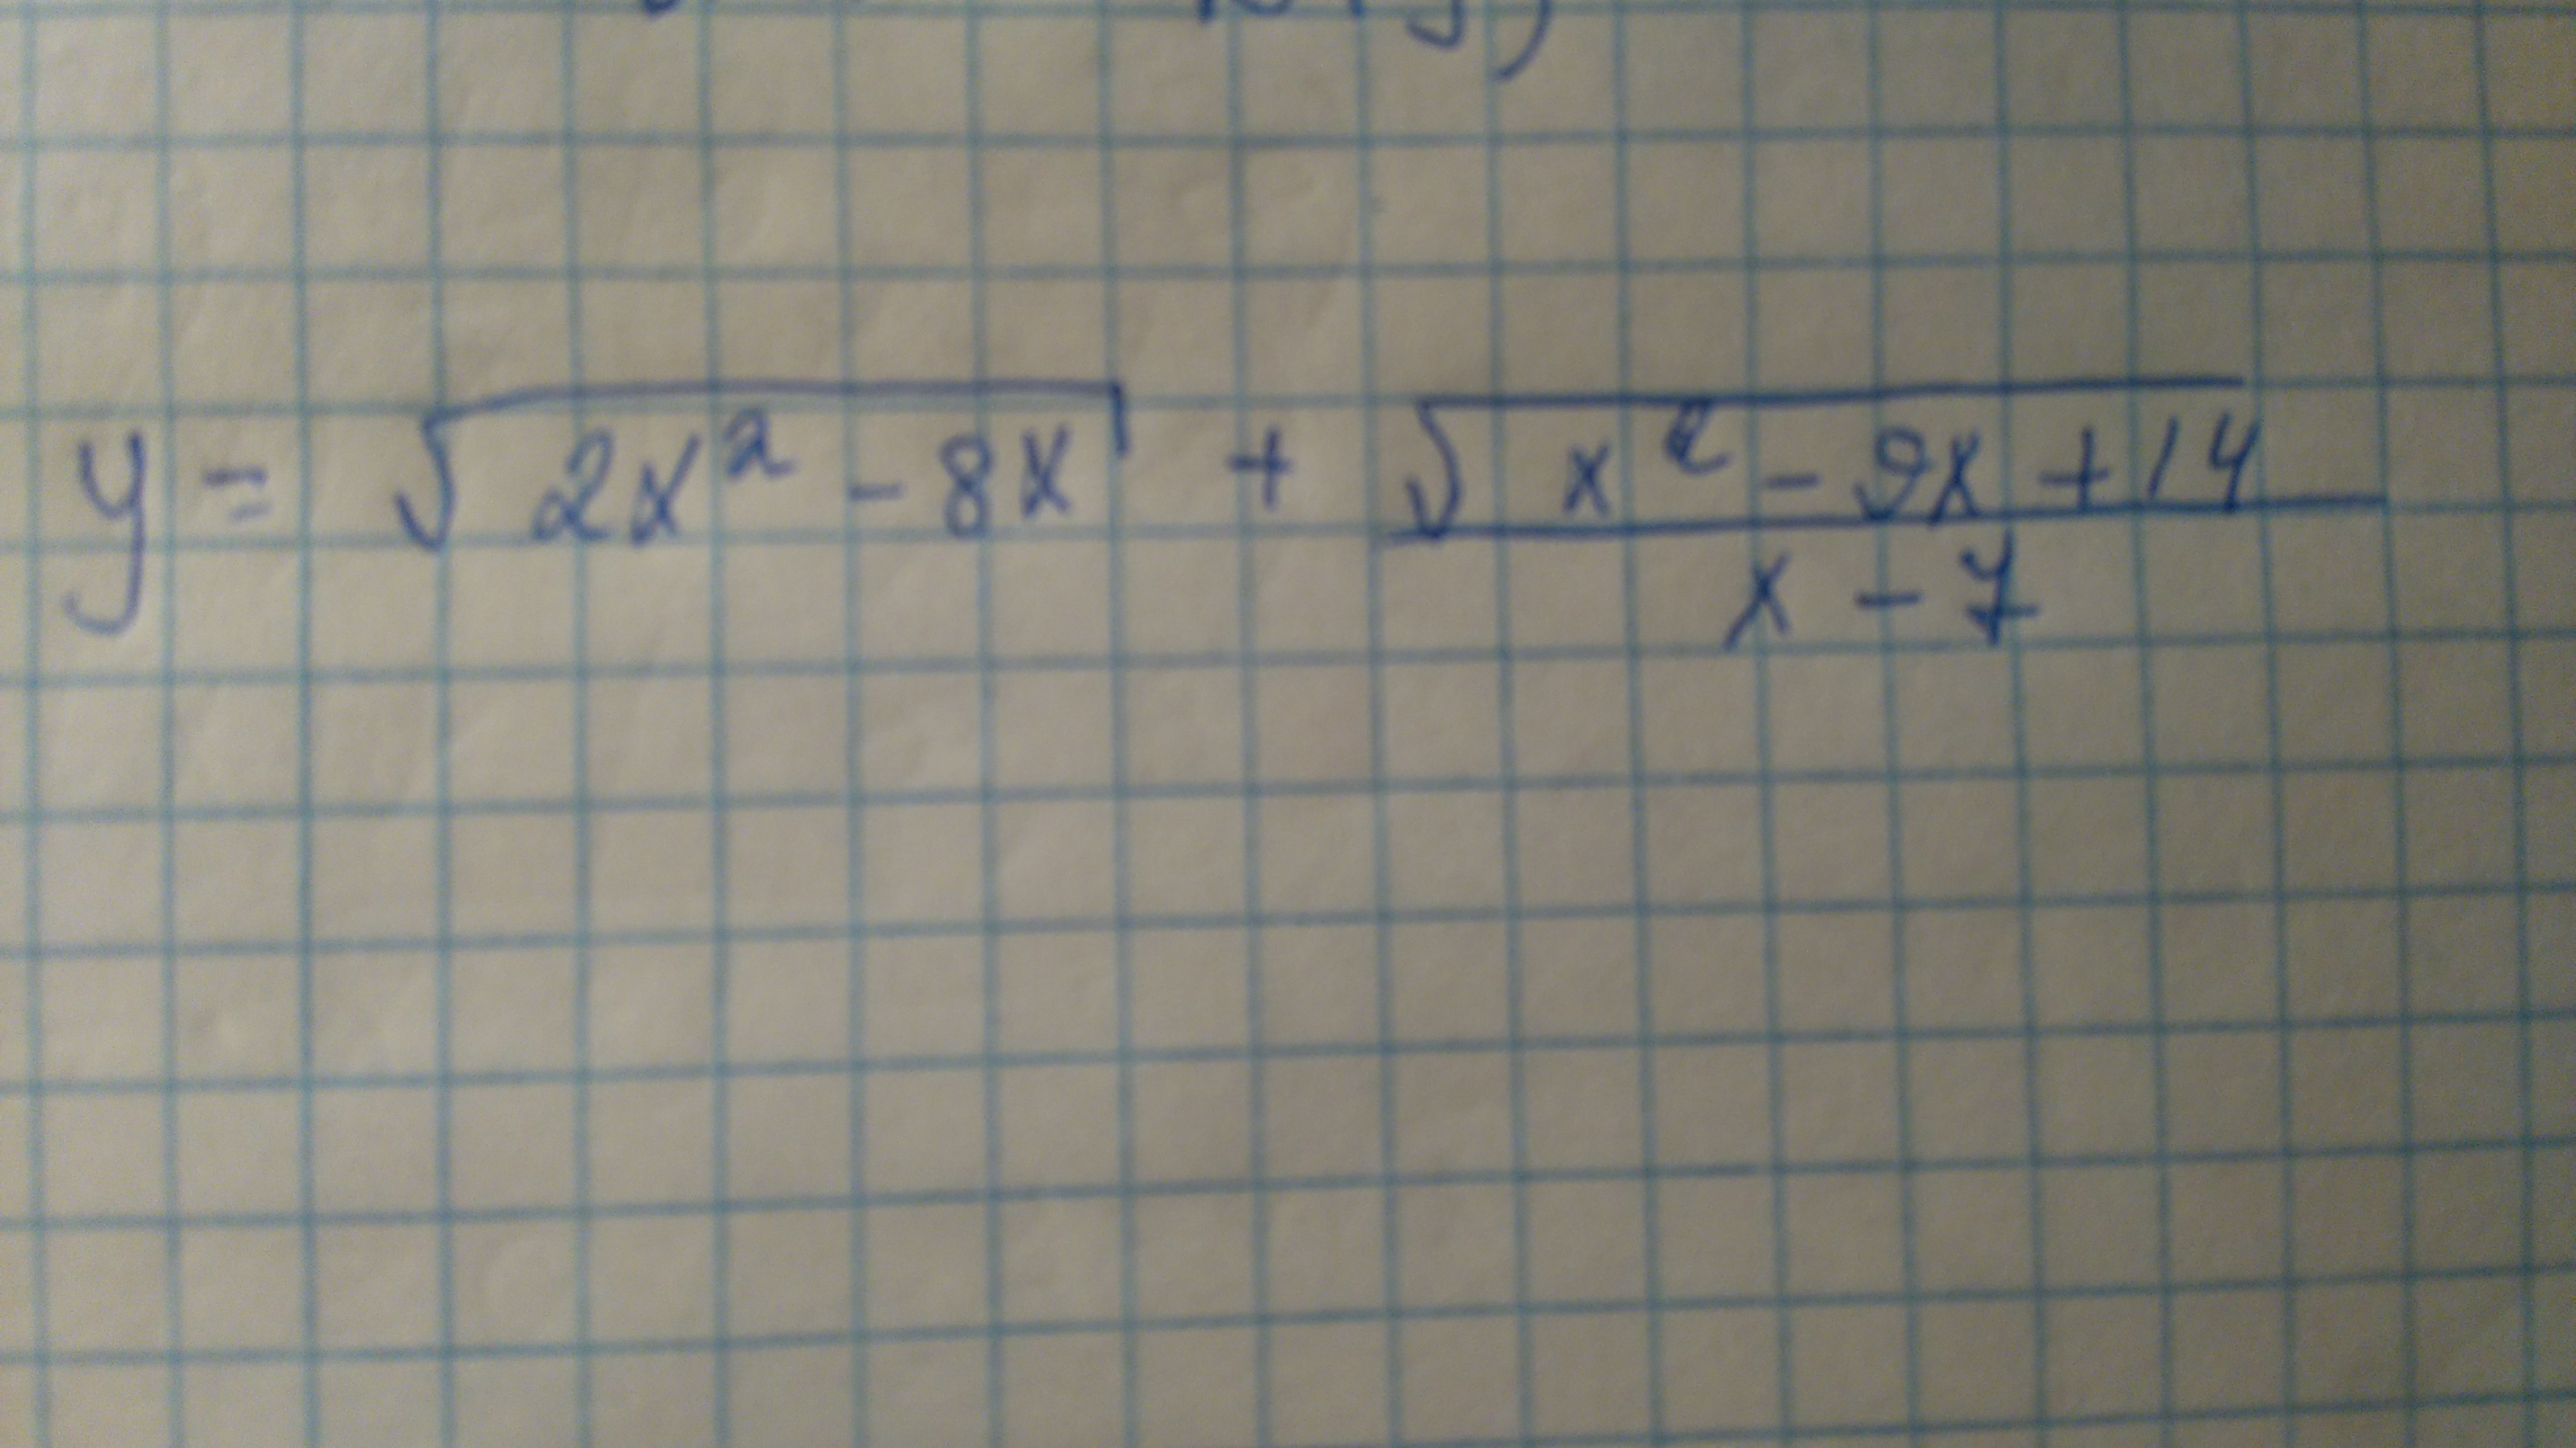 y = √(2x² - 8x) + √(x² - 9x + 14) / (x - 7)